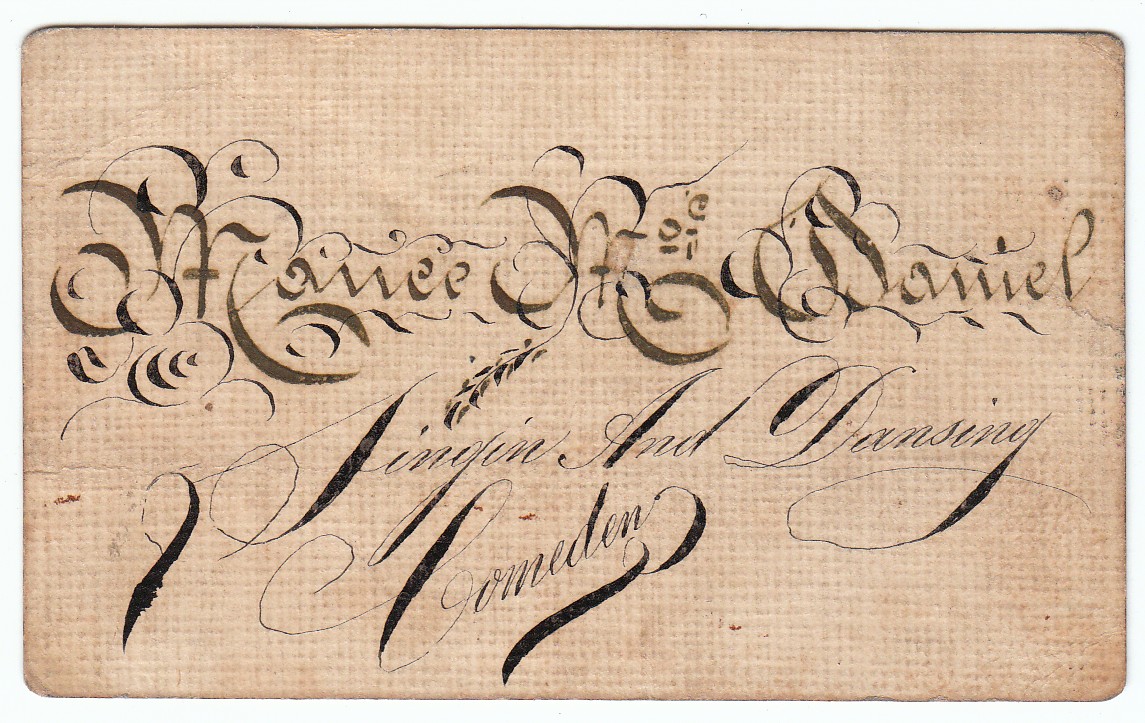 Mc Daniel
Singin And Dansing
Comeden